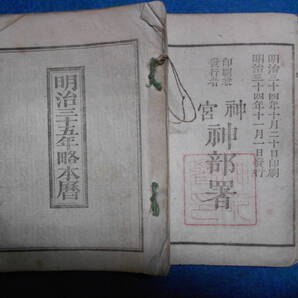 明治三十五年略本暦
明治三十四年十月二十日印刷
明治三十四年十一月一日發行
印刷兼
發行者
神宮神部署